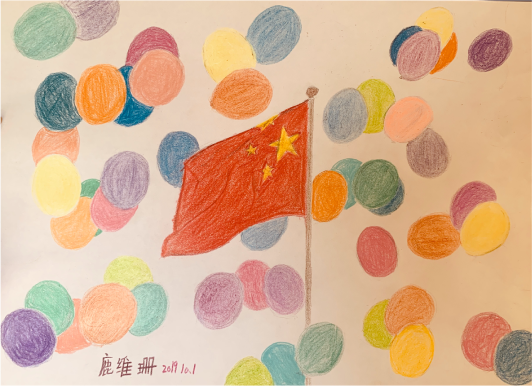 鹿维珊 2019.10.1